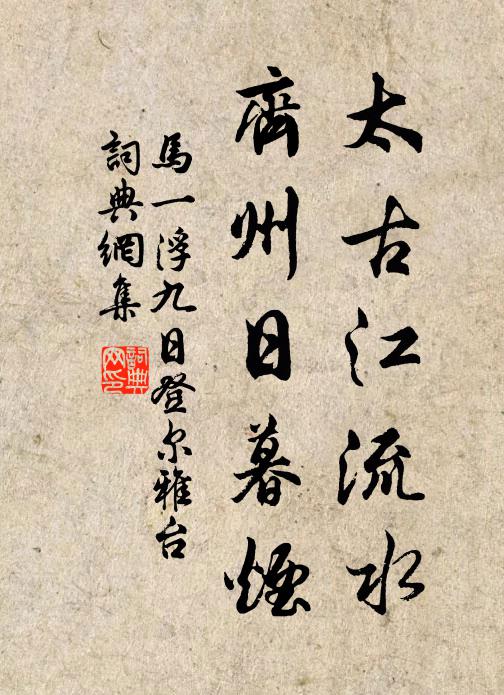 太古江流水
齊州日暮煙
馬一浮九日登尔雅台
詞典網集
詞典网印